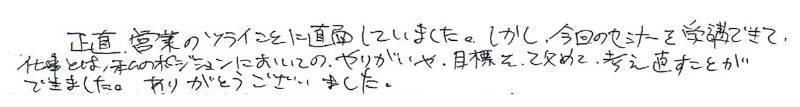 正直、営業のツライことに直面していました。しかし、今回のセミナーを受講できて、
仕事とは、私のポジションにおいての、やりがいや、目標を、改めて、考え直すことが
できました。ありがとうございました。